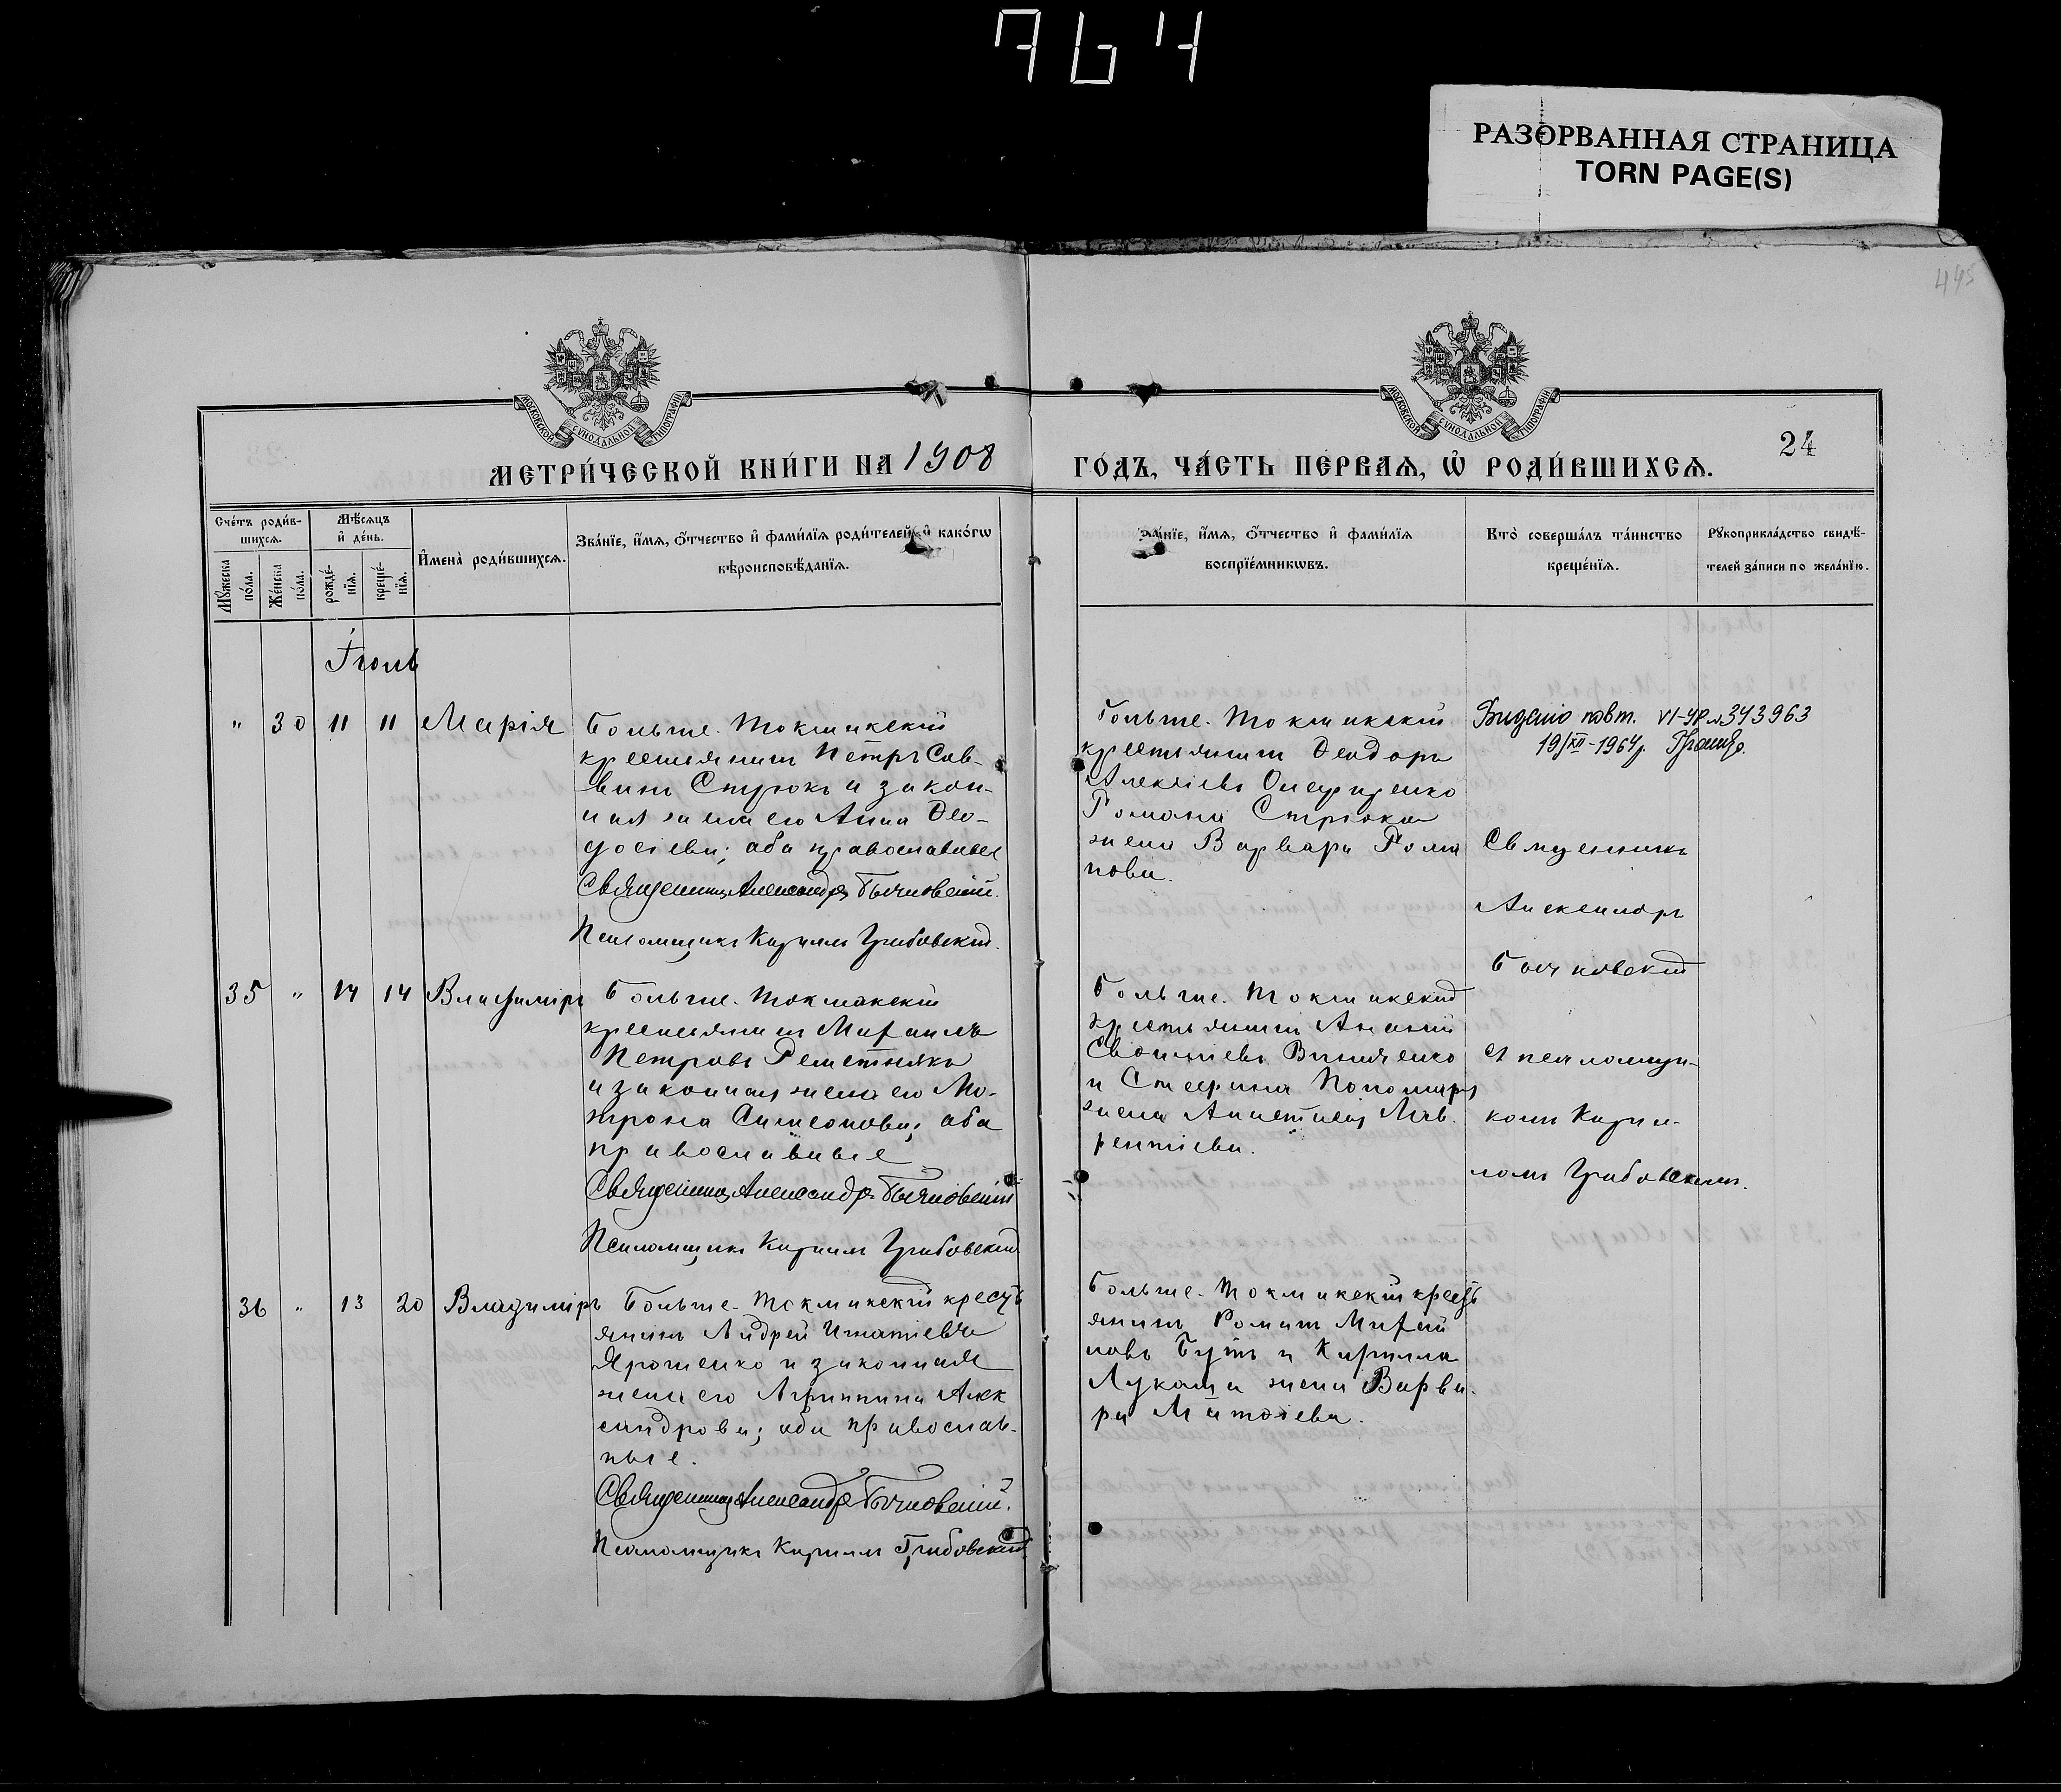 764
РАЗОРВАННАЯ СТРАНИЦА
TORN PAGE(S)
445
МОСКОВСКОЙ СѴНОДАЛЬНОЙ ТИПОГРАФІИ
МОСКОВСКОЙ СѴНОДАЛЬНОЙ ТИПОГРАФІИ
24
МЕТРИ́ЧЕСКОЙ КНИ́ГИ НА 1908
ГО́ДЪ, ЧА́СТЬ ПЕ́РВАѦ, Ѡ҆ РОДИ́ВШИХСѦ.
Сче́тъ роди́вшихсѧ.
Мꙋ́жеска по́ла.
Же́нска по́ла.
Мѣ́сѧцъ и҆ де́нь.
рожде́нїѧ.
креще́нїѧ.
И҆мена̀ роди́вшихсѧ.
Зва́нїе, и҆́мѧ, ѻ҆́тчество и҆ фами́лїѧ роди́телей, и҆ како́гѡ
вѣроисповѣ́данїѧ.
Зва́нїе, и҆́мѧ, ѻ҆́тчество и҆ фами́лїѧ
воспрїе́мникѡвъ.
Кто̀ соверша́лъ та́инство
креще́нїѧ.
Рꙋкоприкла́дство свидѣ́-
телей за́писи по жела́нїю.
Іюль
" 30 11 11 Марія
Больше-Токмакскій
крестьянинъ Петръ Сав-
винъ Струкъ и закон-
ная жена его Анна Ѳео-
досіева; оба православные
Священникъ Александръ Бычковскій.
Псаломщикъ Кириллъ Грибовскій.
Больше-Токмакскій
крестьянинъ Ѳеодоръ
Алексіевъ Онуфріенко
Романа Струка
жена Варвара Рома
нова.
Видано повт. VI-УР № 343963
19/XII-1964р.
Священникъ
Александръ
Бычковскій
съ псаломщи-
комъ Кирил-
ломъ Грибовскимъ.
35 " 14 14 Владиміръ
Больше-Токмакскій
крестьянинъ Михаилъ
Петровъ Решетнякъ
и законная жена его Ма-
трона Симеонова; оба
православные
Священникъ Александръ Бычковскій
Псаломщикъ Кириллъ Грибовскій
Больше-Токмакскій
крестьянинъ Ананій
Винниченко
и Стефана Пономаря
жена Анастасія Лав-
рентіева.
36 " 13 20 Владиміръ
Больше-Токмакскій кресть
янинъ Андрей Игнатіевъ
Ярошенко и законная
жена его Агриппина Алек
сандрова; оба православ-
ные.
Священникъ Александръ Бычковскій.
Псаломщикъ Кириллъ Грибовскій
Больше-Токмакскій кресть
янинъ Романъ Михай
ловъ Бутъ и Кирилла
Лукаша жена Варва-
ра Матѳіева.